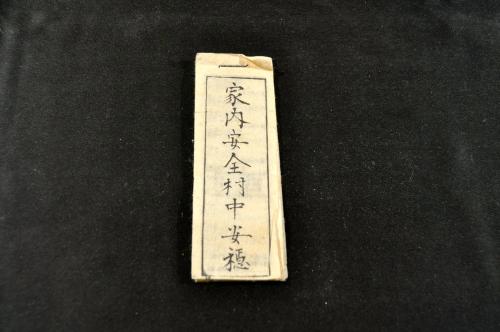 家内安全村中安穏